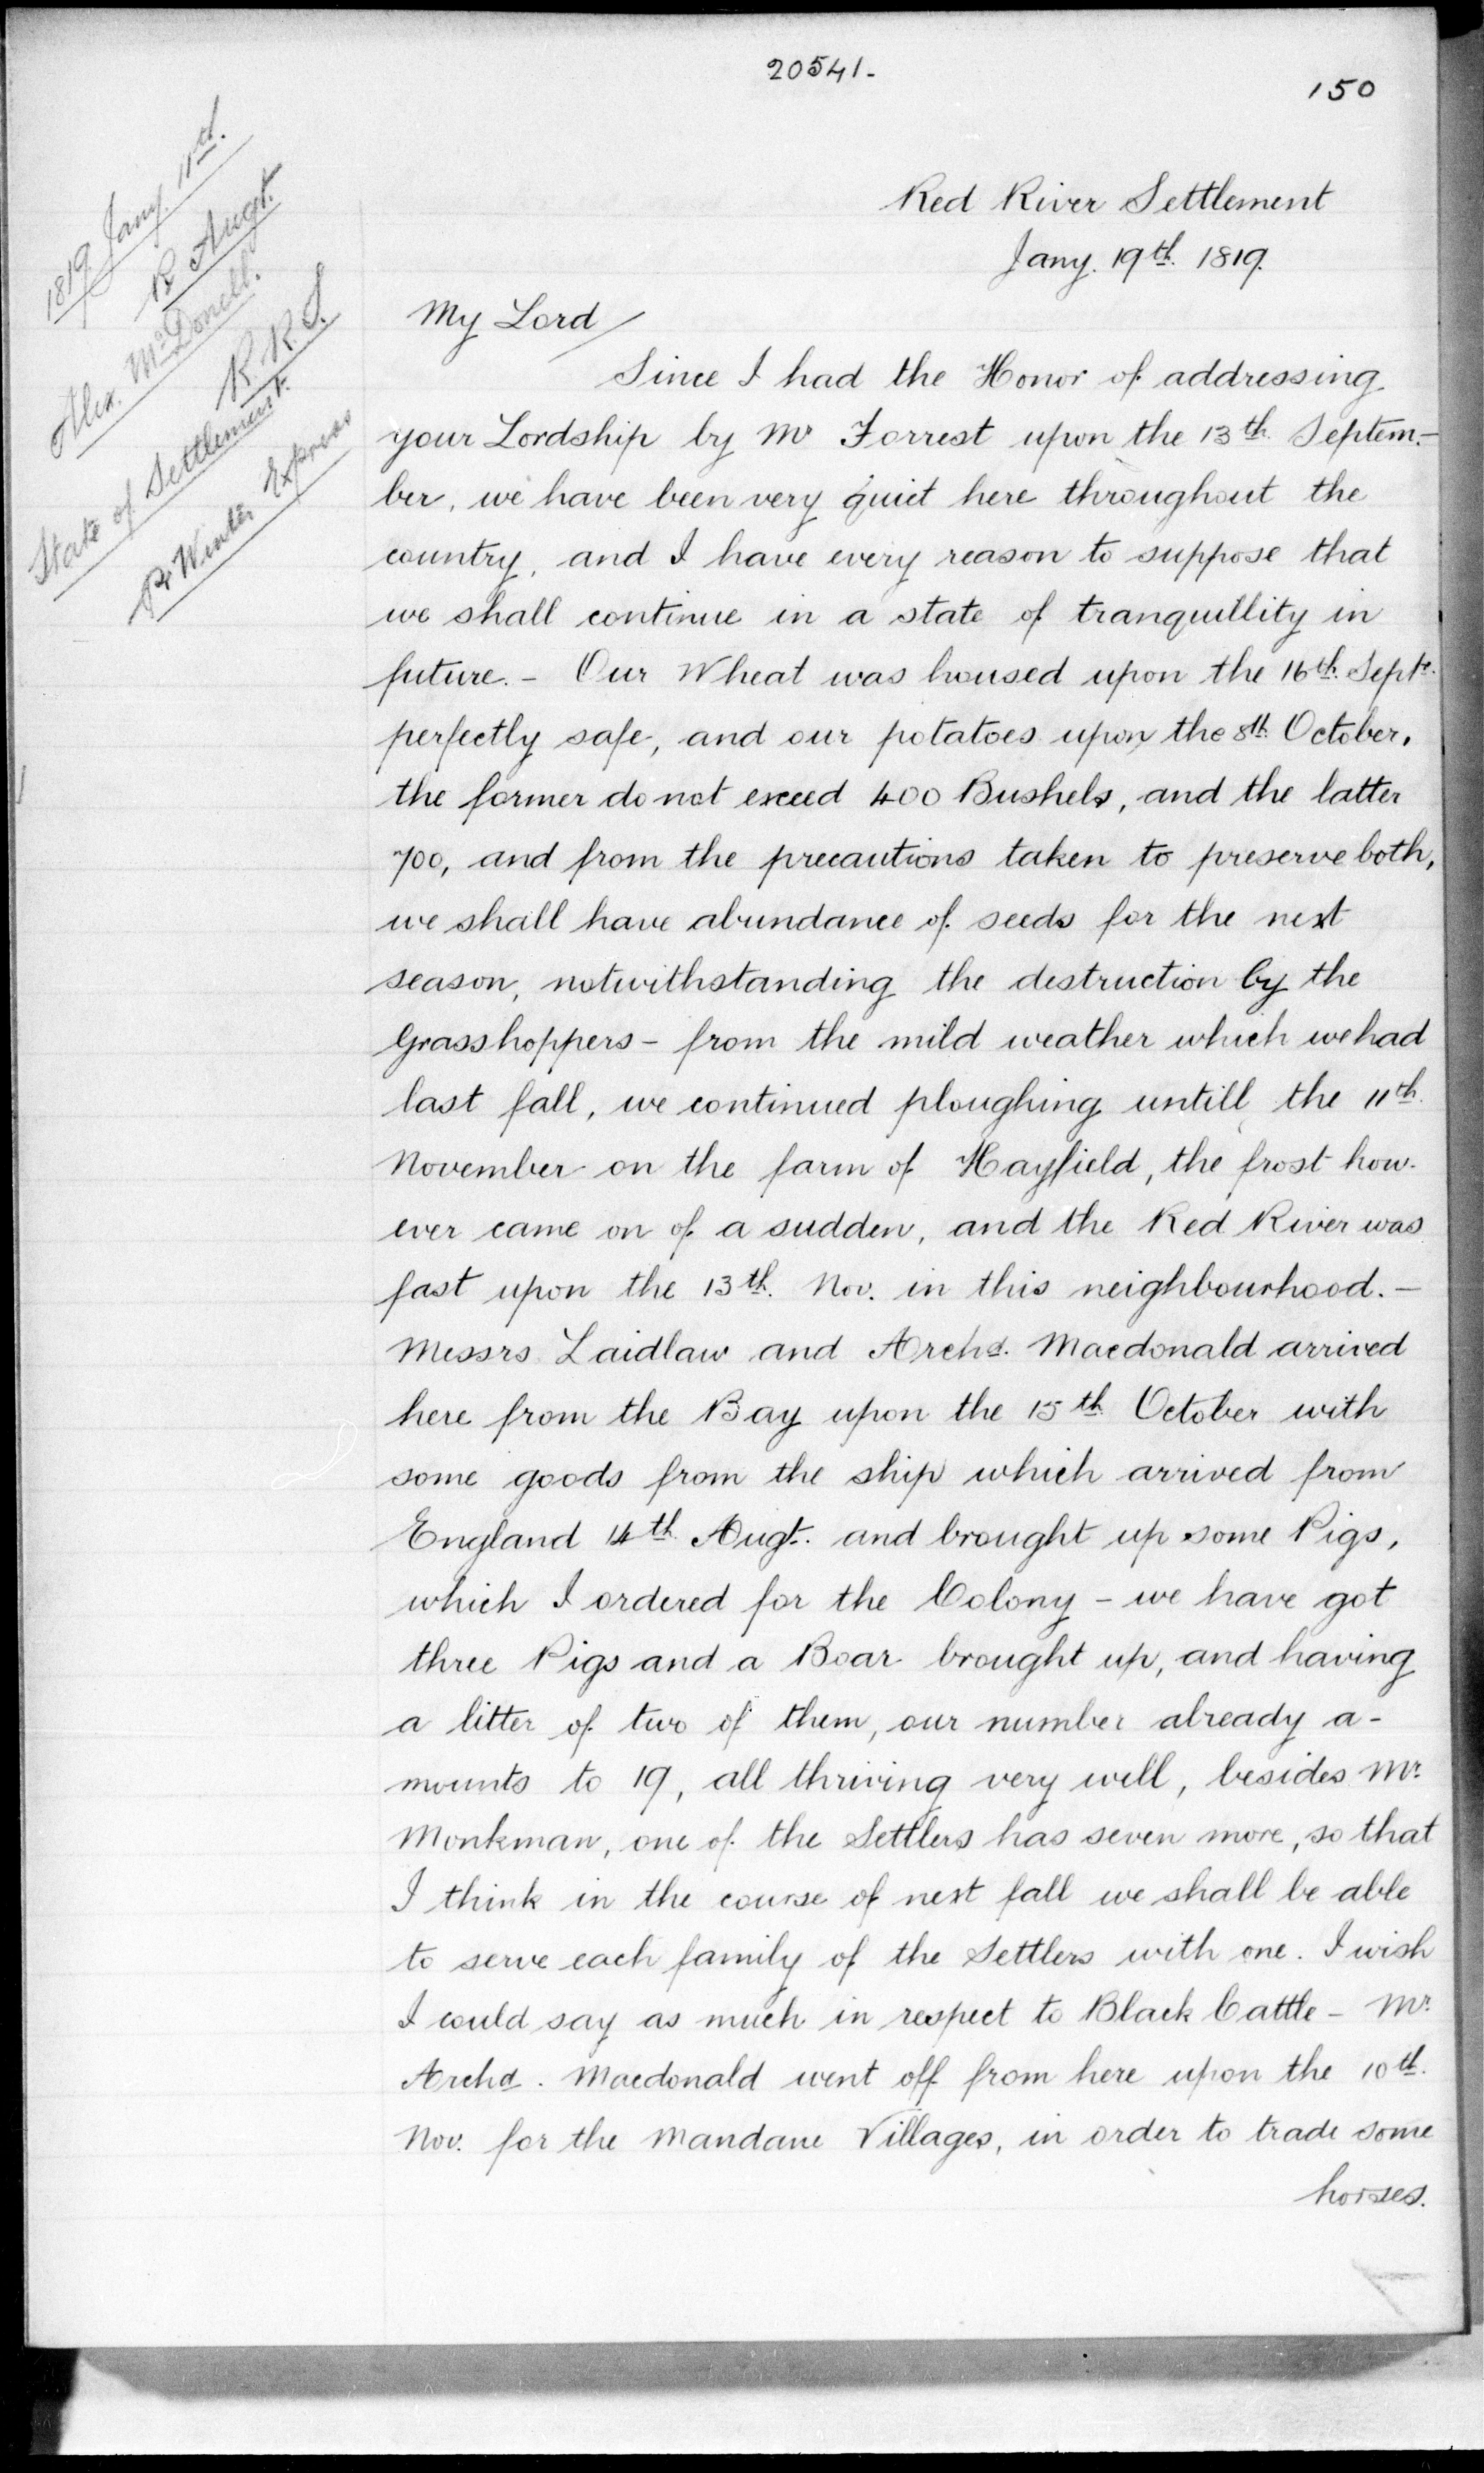 20541-
150
1819 Jany. 11th.
R Augt.
Alex. McDonell.
R. R. S.
State of Settlement.
Pr Winter Express
Red River Settlement
Jany. 19th. 1819.
My Lord/
Since I had the Honor of addressing
your Lordship by Mr Forrest upon the 13th. Septem-
ber, we have been very quiet here throughout the
country, and I have every reason to suppose that
we shall continue in a state of tranquillity in
future. - Our Wheat was housed upon the 16th. Septr.
perfectly safe, and our potatoes upon the 8th October,
the former do not exceed 400 Bushels, and the latter
700, and from the precautions taken to preserve both,
we shall have abundance of seeds for the next
season, notwithstanding the destruction by the
Grasshoppers - from the mild weather which we had
last fall, we continued ploughing untill the 11th.
November on the farm of Hayfield, the frost how-
ever came on of a sudden, and the Red River was
fast upon the 13th. Nov. in this neighbourhood. -
Messrs Laidlaw and Archd. Macdonald arrived
here from the Bay upon the 15th October with
some goods from the ship which arrived from
England 14th Augt. and brought up some Pigs,
which I ordered for the Colony - we have got
three Pigs and a Boar brought up, and having
a litter of two of them, our number already a-
mounts to 19, all thriving very well, besides Mr.
Monkman, one of the Settlers has seven more, so that
I think in the course of next fall we shall be able
to serve each family of the Settlers with one. I wish
I could say as much in respect to Black Cattle - Mr.
Archd. Macdonald went off from here upon the 10th.
Nov. for the Mandane Villages, in order to trade some
horses.